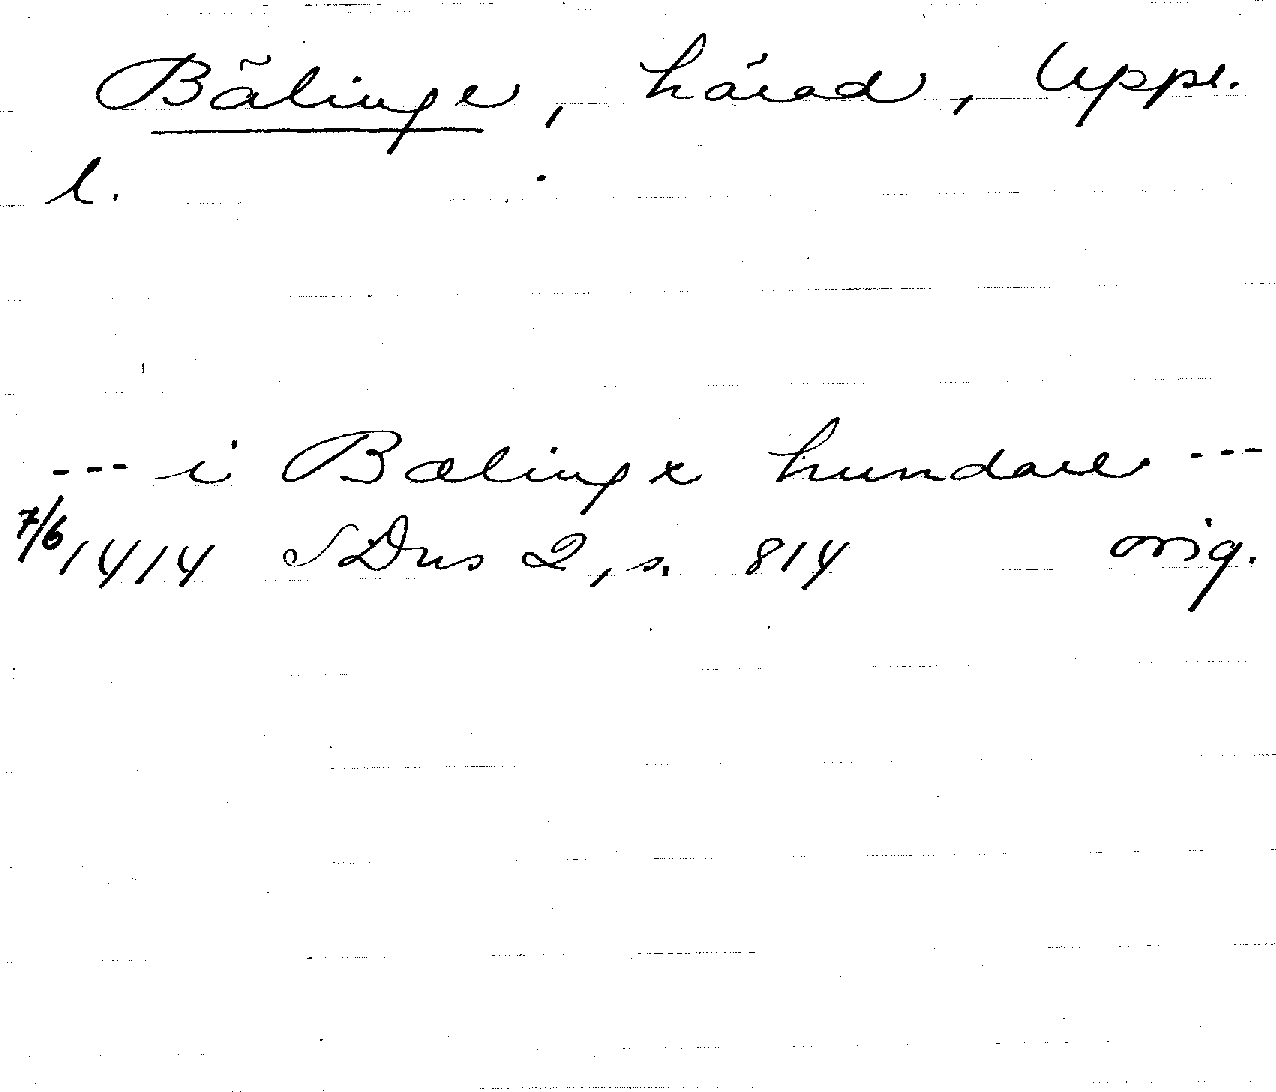 Bälinge, härad, Uppl.
l.
--- i Bælinge hundare ---
7/6 1414 SDns 2, s. 814 orig.